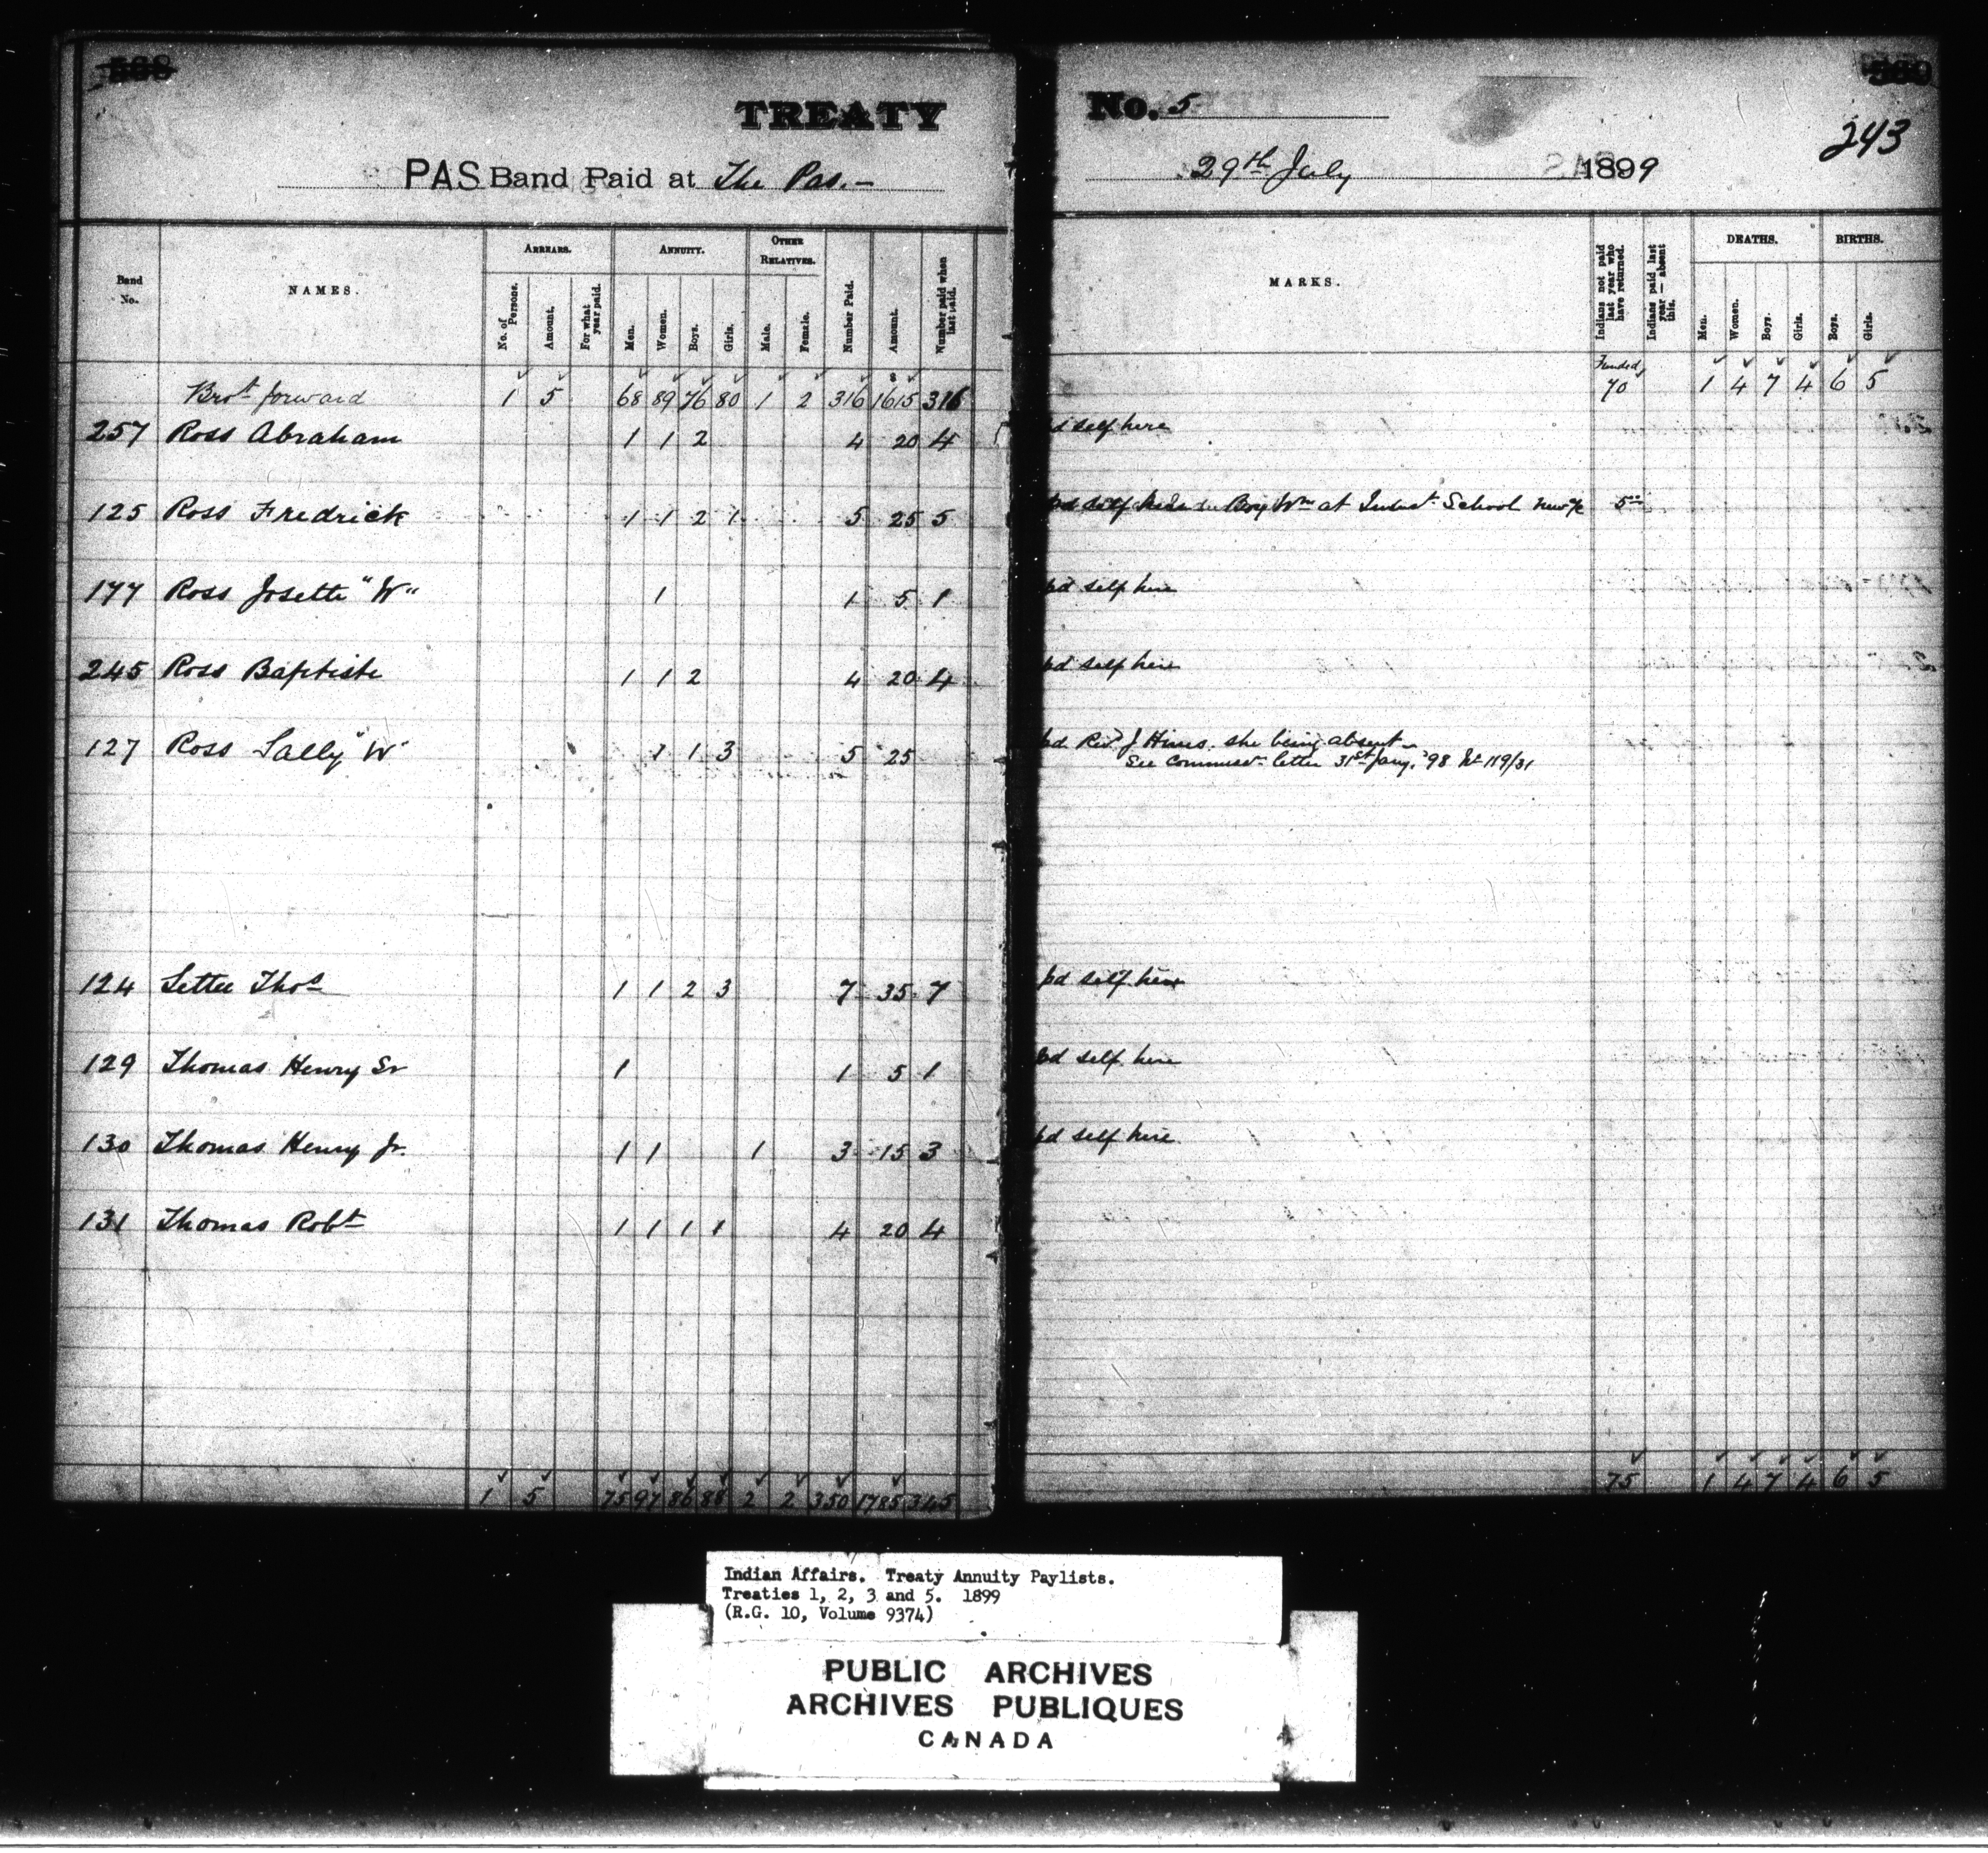 TREATY
PAS Band Paid at The Pas.–
Band No.
NAMES.
ARREARS.
No. of Persons.
Amount.
For what year paid.
ANNUITY.
Men.
Women.
Boys.
Girls.
OTHER RELATIVES.
Male.
Female.
Number Paid.
Amount.
Number paid when last paid.
Brot forward 1 5 68 89 76 80 1 2 316 1615 316
257 Ross Abraham 1 1 2 4 20 4
125 Ross Fredrick 1 1 2 1 5 25 5
177 Ross Josette "W" 1 1 5 1
245 Ross Baptiste 1 1 2 4 20 4
127 Ross Sally "W" 1 1 3 5 25
124 Settee Thos 1 1 2 3 7 35 7
129 Thomas Henry Sr 1 1 5 1
130 Thomas Henry Jr. 1 1 1 3 15 3
131 Thomas Robt 1 1 1 1 4 20 4
1 5 75 97 86 88 2 2 350 1785 345
No. 5
243
29th July 1899
MARKS.
Indians not paid last year who have returned.
Indians paid last year — absent this.
DEATHS.
Men.
Women.
Boys.
Girls.
BIRTHS.
Boys.
Girls.
Funded
70 1 4 7 4 6 5
pd self here
pd self here Boy Wm at Indust School 5
pd self here
pd self here
pd Revd J Hines she being absent –
See Commissr letter 31st Jany. '98 No 119/31
pd self here
pd self here
pd self here
75 1 4 7 4 6 5
Indian Affairs. Treaty Annuity Paylists.
Treaties 1, 2, 3 and 5. 1899
(R.G. 10, Volume 9374)
PUBLIC ARCHIVES
ARCHIVES PUBLIQUES
CANADA